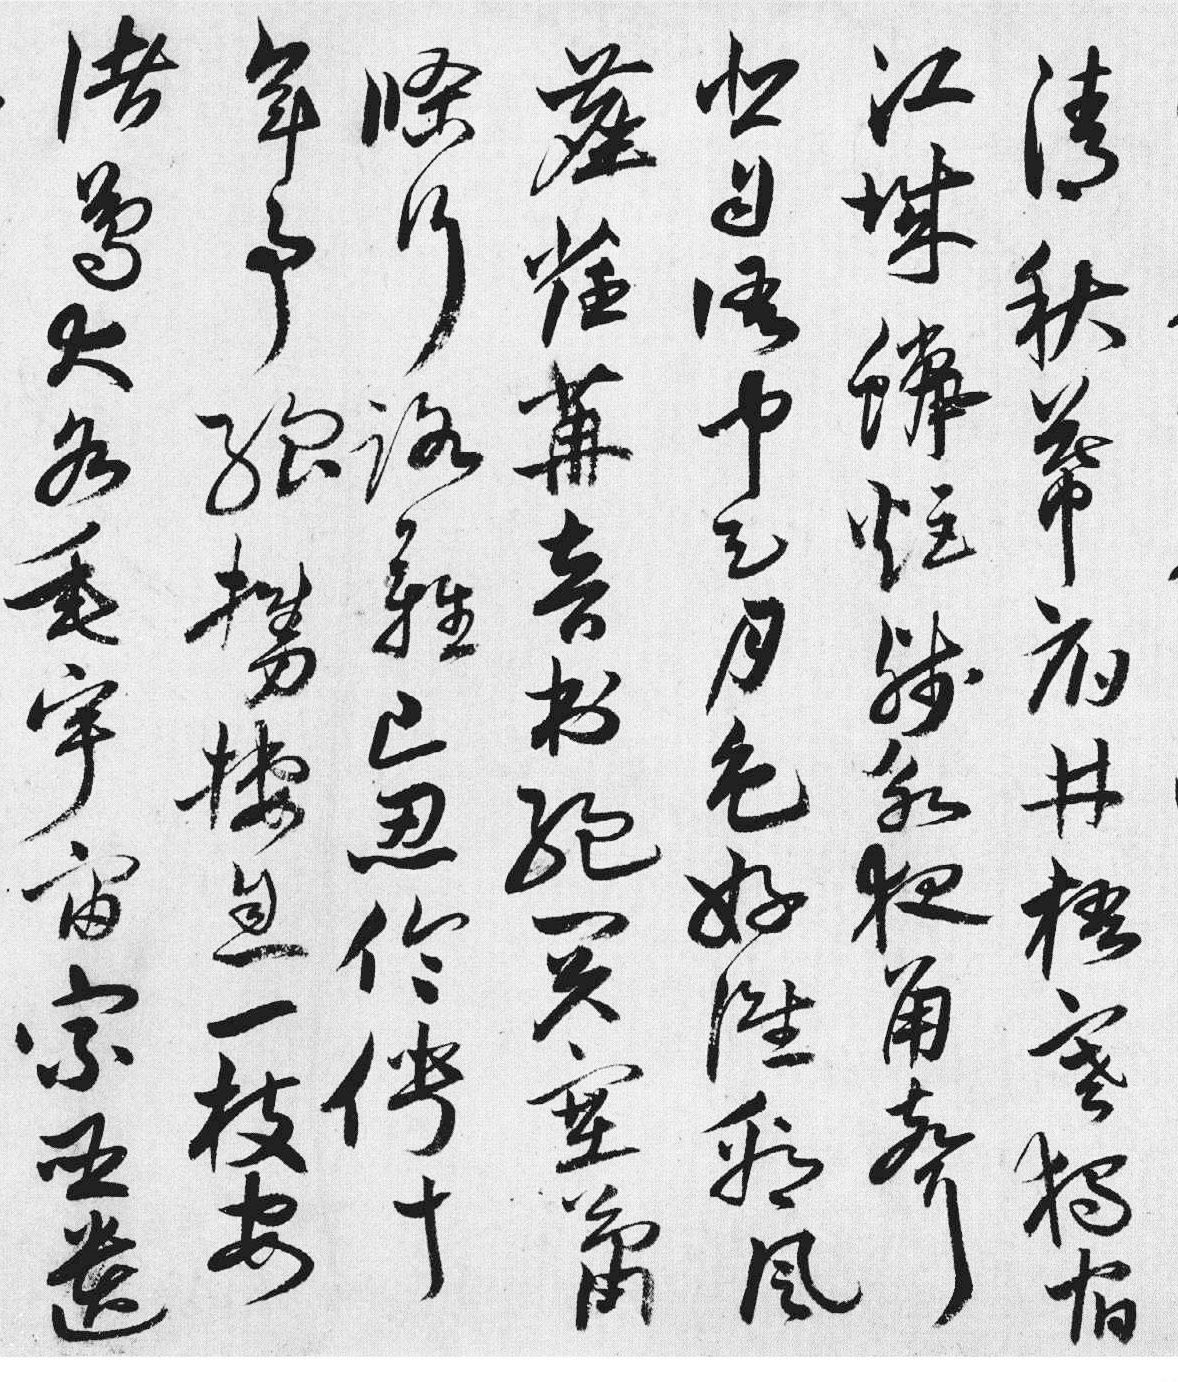 清秋幕府井梧寒獨宿
江城蠟炬殘永夜角聲
悲自語中天月色好誰看風
塵荏苒音書絕關塞蕭
條行路難已忍伶俜十
年事強携棲息一枝安
諸葛大名垂宇宙宗臣遺